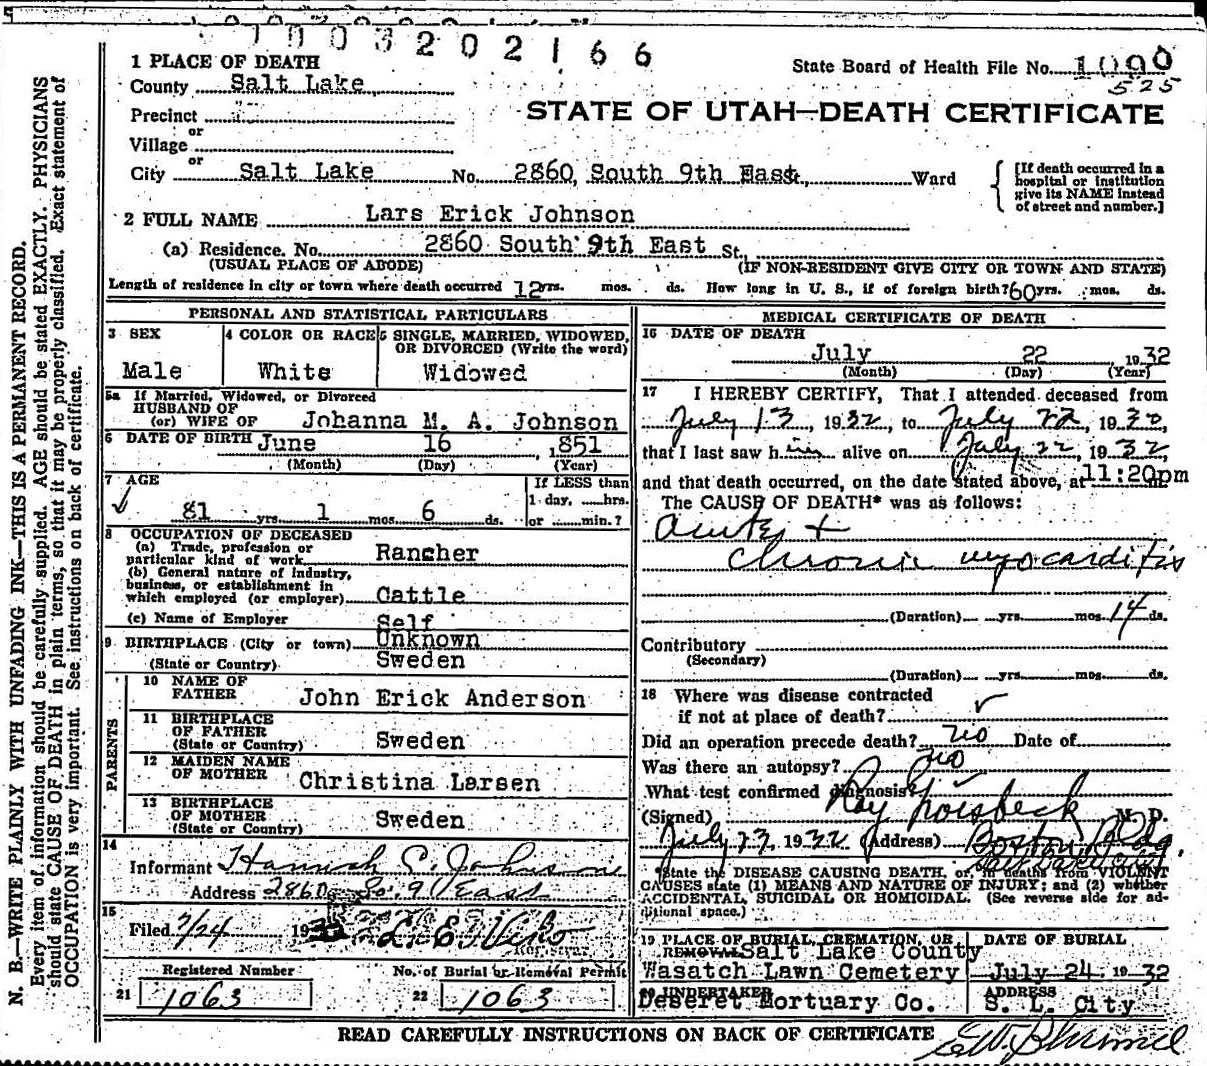 1003202166
1 PLACE OF DEATH
State Board of Health File No. 1090
525
County Salt Lake
STATE OF UTAH—DEATH CERTIFICATE
Precinct "
or
Village
or
City Salt Lake No. 2860 South 9th East, Ward
[If death occurred in a hospital or institution give its NAME instead of street and number.]
2 FULL NAME Lars Erick Johnson
(a) Residence. No. 2860 South 9th East St.,
(USUAL PLACE OF ABODE) (IF NON-RESIDENT GIVE CITY OR TOWN AND STATE)
Length of residence in city or town where death occurred 12 yrs. mos. ds. How long in U. S., if of foreign birth? 60 yrs. mos. ds.
PERSONAL AND STATISTICAL PARTICULARS
3 SEX 4 COLOR OR RACE 5 SINGLE, MARRIED, WIDOWED, OR DIVORCED (Write the word)
Male White Widowed
5a If Married, Widowed, or Divorced
HUSBAND OF
(or) WIFE OF Johanna M. A. Johnson
6 DATE OF BIRTH June 16, 1851
(Month) (Day) (Year)
7 AGE If LESS than
1 day, ......hrs.
81 yrs. 1 mos. 6 ds. or ......min.?
8 OCCUPATION OF DECEASED
(a) Trade, profession or
particular kind of work Rancher
(b) General nature of industry,
business, or establishment in
which employed (or employer) Cattle
(c) Name of Employer Self
9 BIRTHPLACE (City or town) Unknown
(State or Country) Sweden
PARENTS
10 NAME OF
FATHER John Erick Anderson
11 BIRTHPLACE
OF FATHER
(State or Country) Sweden
12 MAIDEN NAME
OF MOTHER Christina Larsen
13 BIRTHPLACE
OF MOTHER
(State or Country) Sweden
14
Informant Hannah C. Johnson
Address 2860 So. 9 East
15
Filed 7/24 1932
Registrar
Registered Number No. of Burial or Removal Permit
21 1063 22 1063
MEDICAL CERTIFICATE OF DEATH
16 DATE OF DEATH
July 22 1932
(Month) (Day) (Year)
17 I HEREBY CERTIFY, That I attended deceased from
July 13, 1932, to July 22, 1932,
that I last saw him alive on July 22, 1932,
and that death occurred, on the date stated above, at 11:20pm
The CAUSE OF DEATH* was as follows:
acute +
chronic myocarditis
(Duration) yrs. mos. 14 ds.
Contributory
(Secondary)
(Duration) yrs. mos. ds.
18 Where was disease contracted
if not at place of death?
Did an operation precede death? no Date of
Was there an autopsy? no
What test confirmed diagnosis?
(Signed) Ray M. D.
July 23, 1932 (Address) Boston Bldg.
Salt Lake City
*State the DISEASE CAUSING DEATH, or, in deaths from VIOLENT
CAUSES state (1) MEANS AND NATURE OF INJURY; and (2) whether
ACCIDENTAL, SUICIDAL OR HOMICIDAL. (See reverse side for ad-
ditional space.)
19 PLACE OF BURIAL, CREMATION, OR DATE OF BURIAL
REMOVAL Salt Lake County
Wasatch Lawn Cemetery July 24 1932
20 UNDERTAKER ADDRESS
Deseret Mortuary Co. S. L. City
READ CAREFULLY INSTRUCTIONS ON BACK OF CERTIFICATE
N. B.—WRITE PLAINLY WITH UNFADING INK—THIS IS A PERMANENT RECORD.
Every item of information should be carefully supplied. AGE should be stated EXACTLY. PHYSICIANS
should state CAUSE OF DEATH in plain terms, so that it may be properly classified. Exact statement of
OCCUPATION is very important. See instructions on back of certificate.